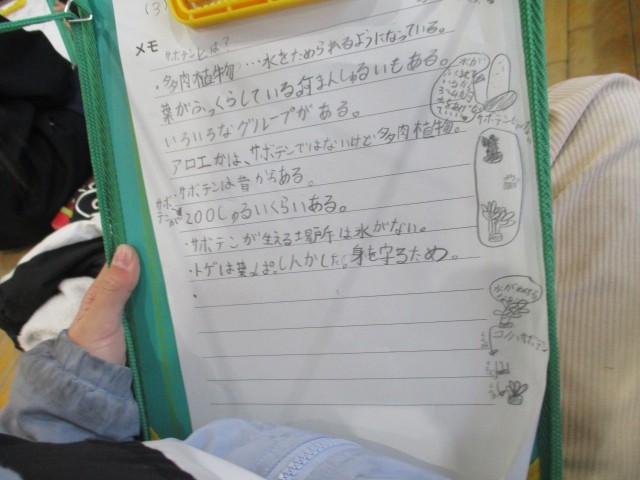 (3)
メモ サボテンとは?
・多肉植物…水をためられるようになっている。
葉がふっくらしている
しゅるいもある。
いろいろなグループがある。
アロエかは、サボテンではないけど多肉植物。
・サボテンは昔からある。
サボテンが 200しゅるいくらいある。
・サボテンが生える場所は水がない。
・トゲは葉っぱ。しんかした。身を守るため。
・
水が
サボテン